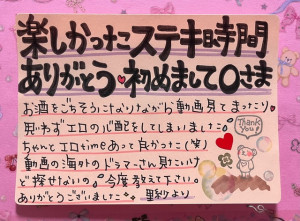 楽しかったステキ時間
ありがとう♥初めましてOさま
お酒をごちそうになりながら動画見てまったり
思わずエロの心配をしてしまいました
ちゃんとエロtimeあって良かった(笑)
動画の海外のドラマーさん見たいけ
ど探せないの。今度教えて下さい。
ありがとうございました 里紗より
Thank You!